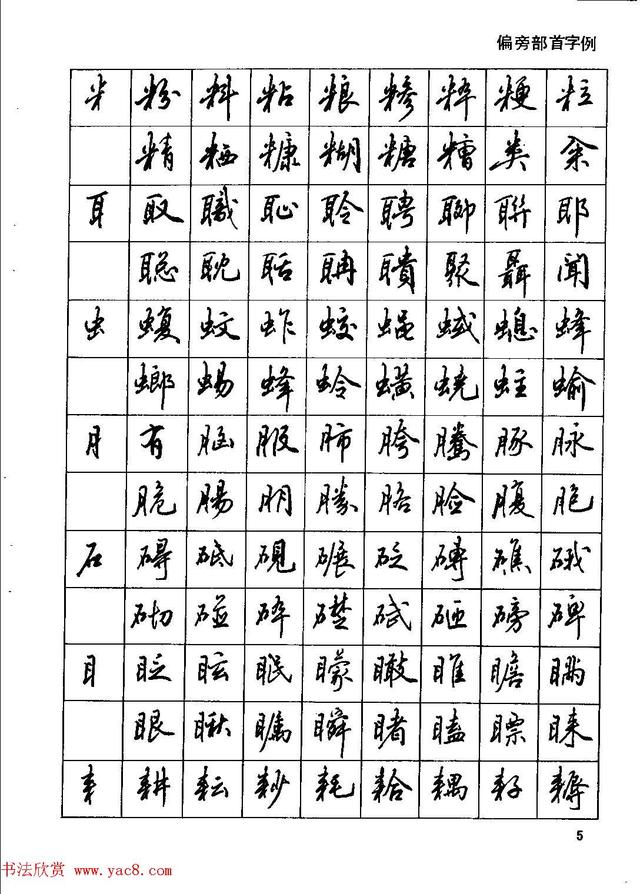 偏旁部首字例
米 粉 料 粘 粮 糁 粹 粳 粒
精 粞 糠 糊 糖 糟 类
耳 取 職 耻 聆 聘 聊 聯 耶
聪 耽 聒 聩 聚 聶 聞
虫 蝮 蚊 蚱 蛟 蝇 蜮 蟋 蜂
螂 蜴 蛉 蟥 蟯 蛀 蝓
月 有 脑 服 肺 胯 腾 豚 脉
脆 腸 明 勝 胳 脸 腹 胞
石 碍 砥 硯 碾 砭 磚 礁 硪
砌 碰 碎 礎 砸 磅 碑
目 眨 眩 眠 矇 瞰 睢 瞻
眼 瞅 瞩 瞬 睹 瞌 瞟 睐
耒 耕 耘 耖 耗 耠 耦 耔 耨
5
书法欣赏 www.yac8.com